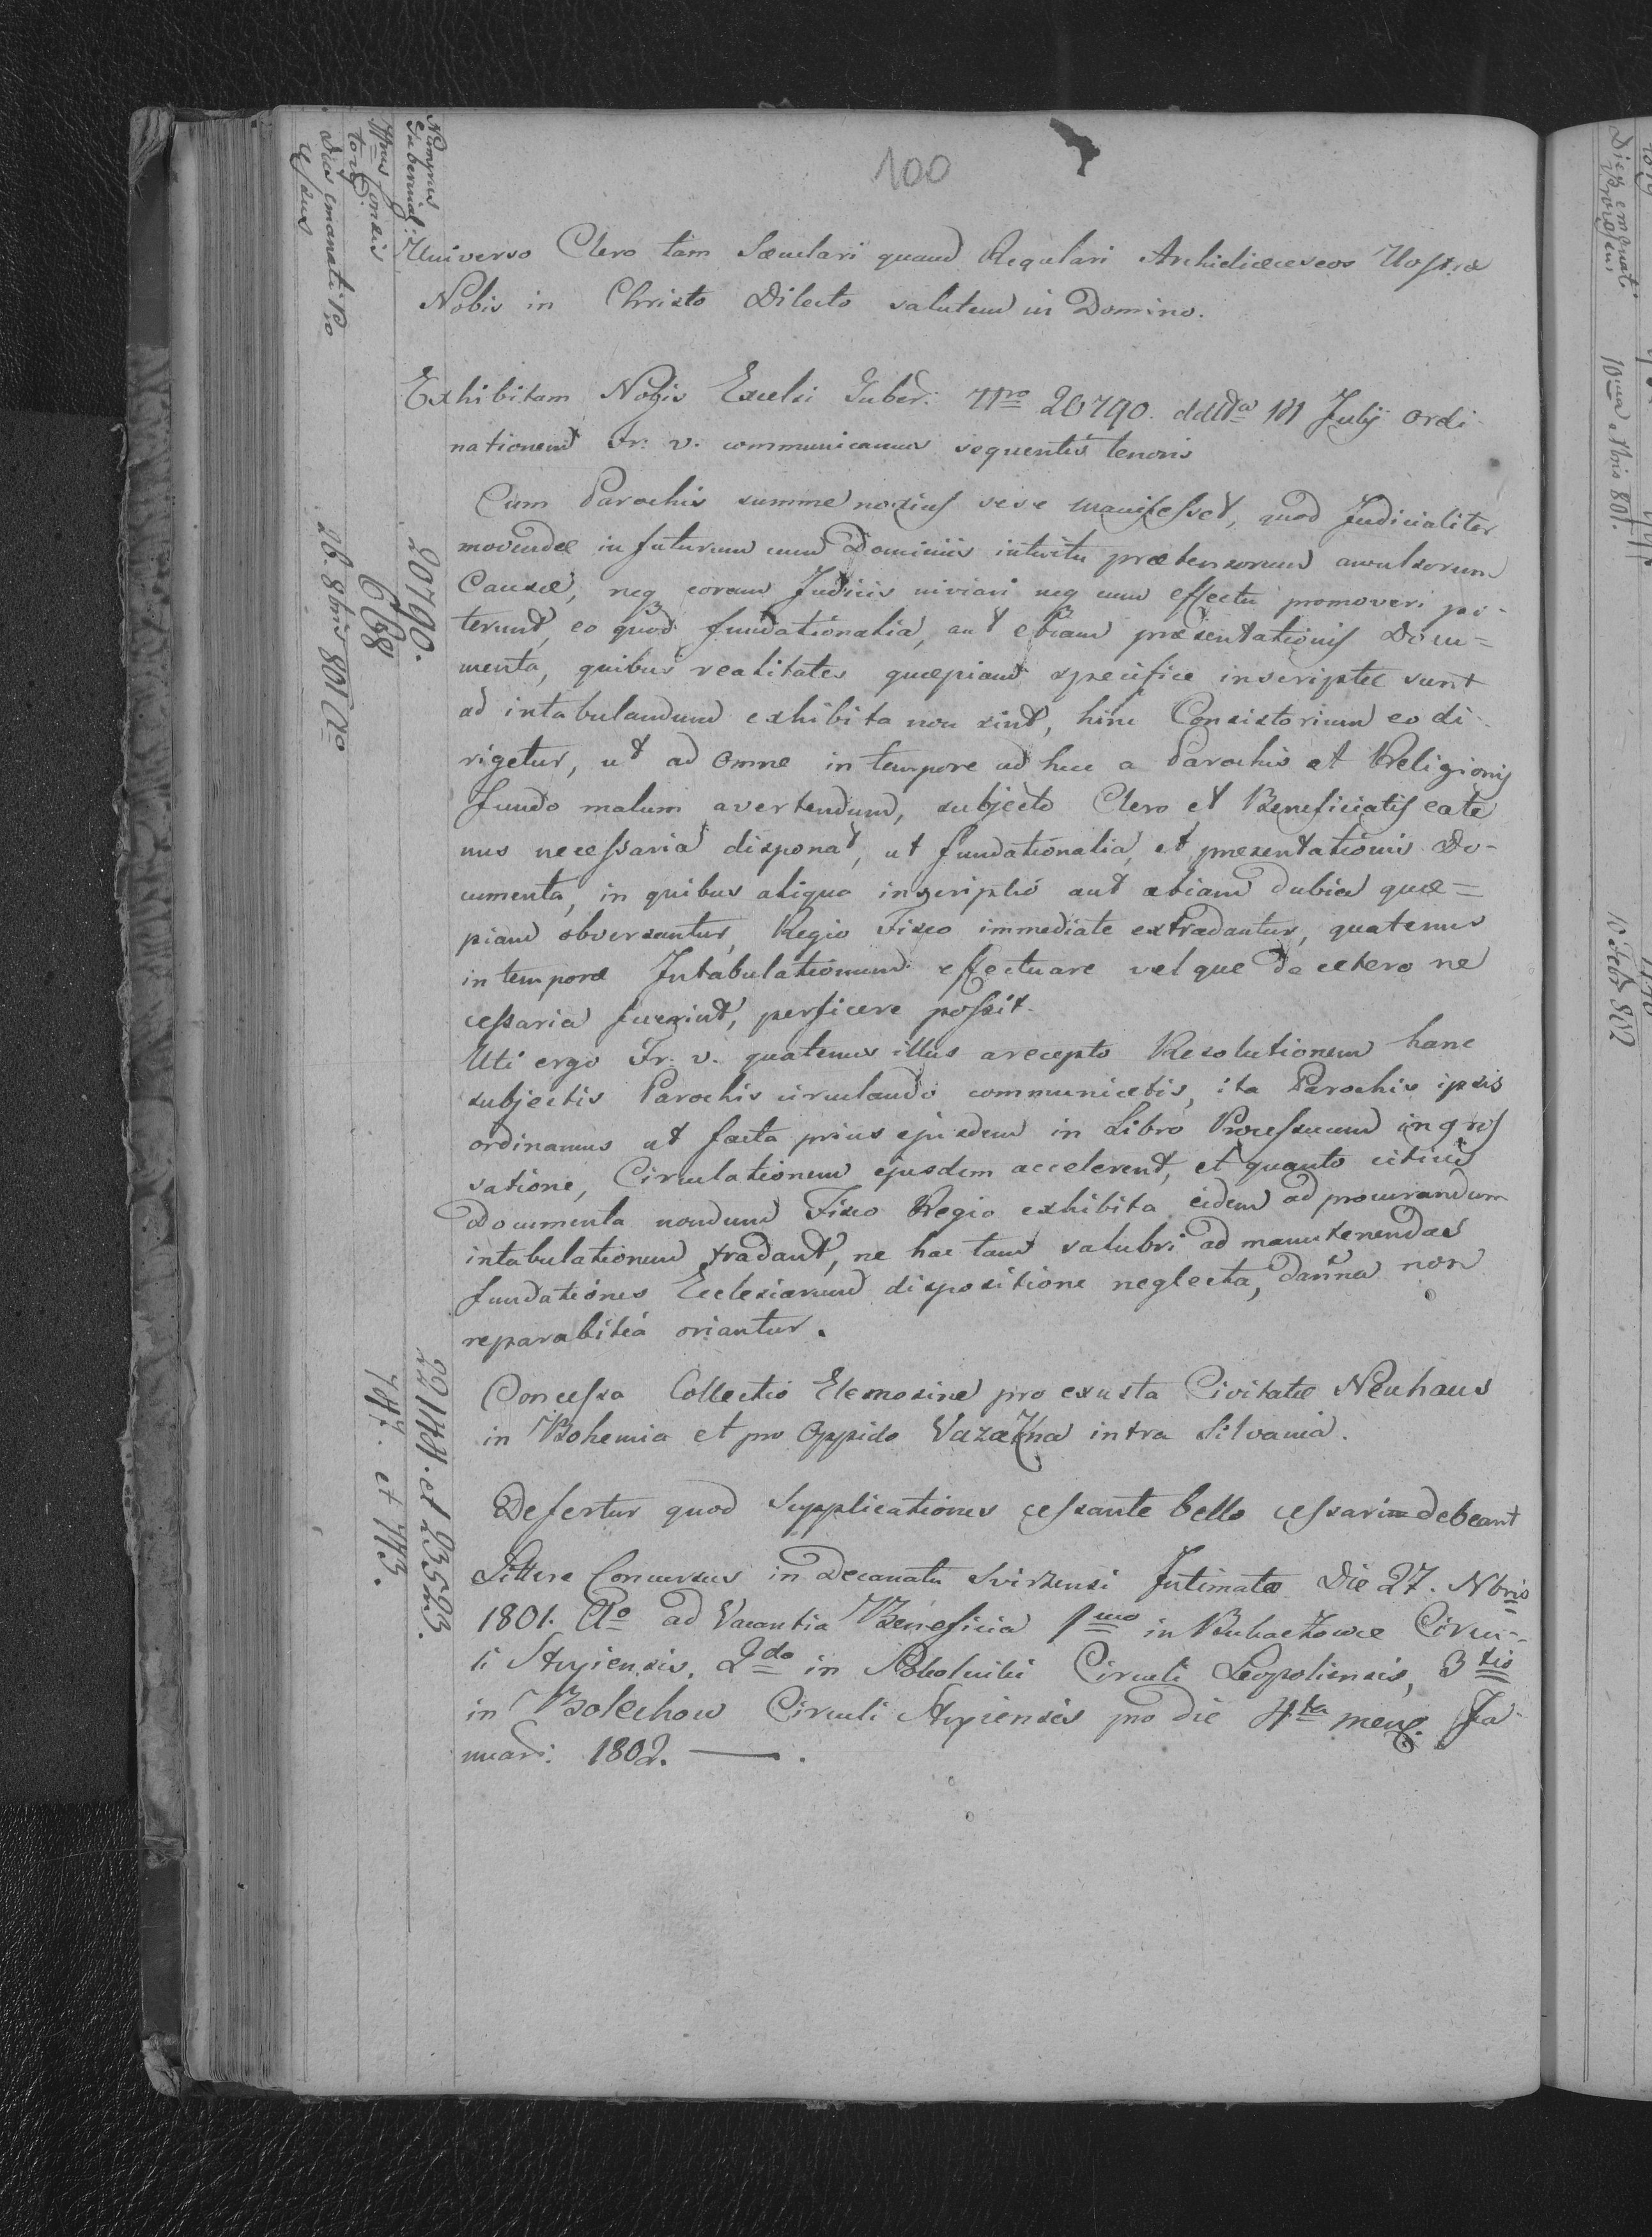 100
Numerus
Gubernial:
Nrus Consis
toris
Dies emanati Pro
cessus
Universo Clero tam Sæculari quam Regulari Archidiœceseos Nostræ
Nobis in Christo Dilecto salutem in Domino.
20790.
688
26. 8bris 801 Ao
Exhibitam Nobis Excelsi Guber: Nro 20790. ddto 11 July ordi-
nationem Fr. v. communicamus sequentis tenoris
Cum Parochis summe noxius sese manifesset, quod Judicialiter
movendæ in futurum cum Dominiis intuitu prætensorum avulsorum
Causæ, neq coram Judiciis iniviari neq cum effectu promoveri po-
terunt, eo quod fundationalia, aut etiam præsentationis Docu=
menta, quibus realitates quæpiam specifice inscriptæ sunt
ad intabulandum exhibita non sint, hinc Consistorium eo di-
rigetur, ut ad omne in tempore ad huc a Parochis et Religionis
fundo malum avertendum, subjecto Clero et Beneficiatis eate
nus necessaria disponat, ut fundationalia, et præsentationis Do-
cumenta, in quibus aliqua inscriptio aut etiam dubia quæ=
piam observantur, Regio Fisco immediate extradantur, quatenus
in tempore Intabulationem effectuare vel que de cetero ne
cessaria fuerint, perficere possit.
Uti ergo Fr. v. quatenus illius arecepto Resolutionem hanc
subjectis Parochis circulando communicetis, ita Parochis ipsis
ordinamus ut facta prius ejusdem in Libro Processuum ingros
satione, Circulationem ejusdem accelerent, et quanto citius
Documenta nondum Fisco Regio exhibita eidem ad procurandum
intabulationem tradant, ne hac tam salubri ad manutenendas
fundationes Ecclesiarum dispositione neglecta, dam̅na non
reparabilia oriantur.
22144. et 23523.
707. et 713.
Concessa Collectio Elemosine pro exusta Civitate Neuhaus
in Bohemia et pro Oppido intra Silvania.
Defertur quod Supplicationes cessante bello cessari debeant
Littere Concursus in Decanatu Svirzensi Intimatæ Die 27. Nbris
1801. Ao ad Vacantia Beneficia 1mo in Bukaczowce Circu-
li Stryiensis, 2do in Circuli Leopoliensis, 3tio
in Bolechow Circuli Stryiensis pro die 4ta mens. Ja-
nuari: 1802. —.
Dies emanati
Processus
10ma 8bris 801.
10 Febr 802